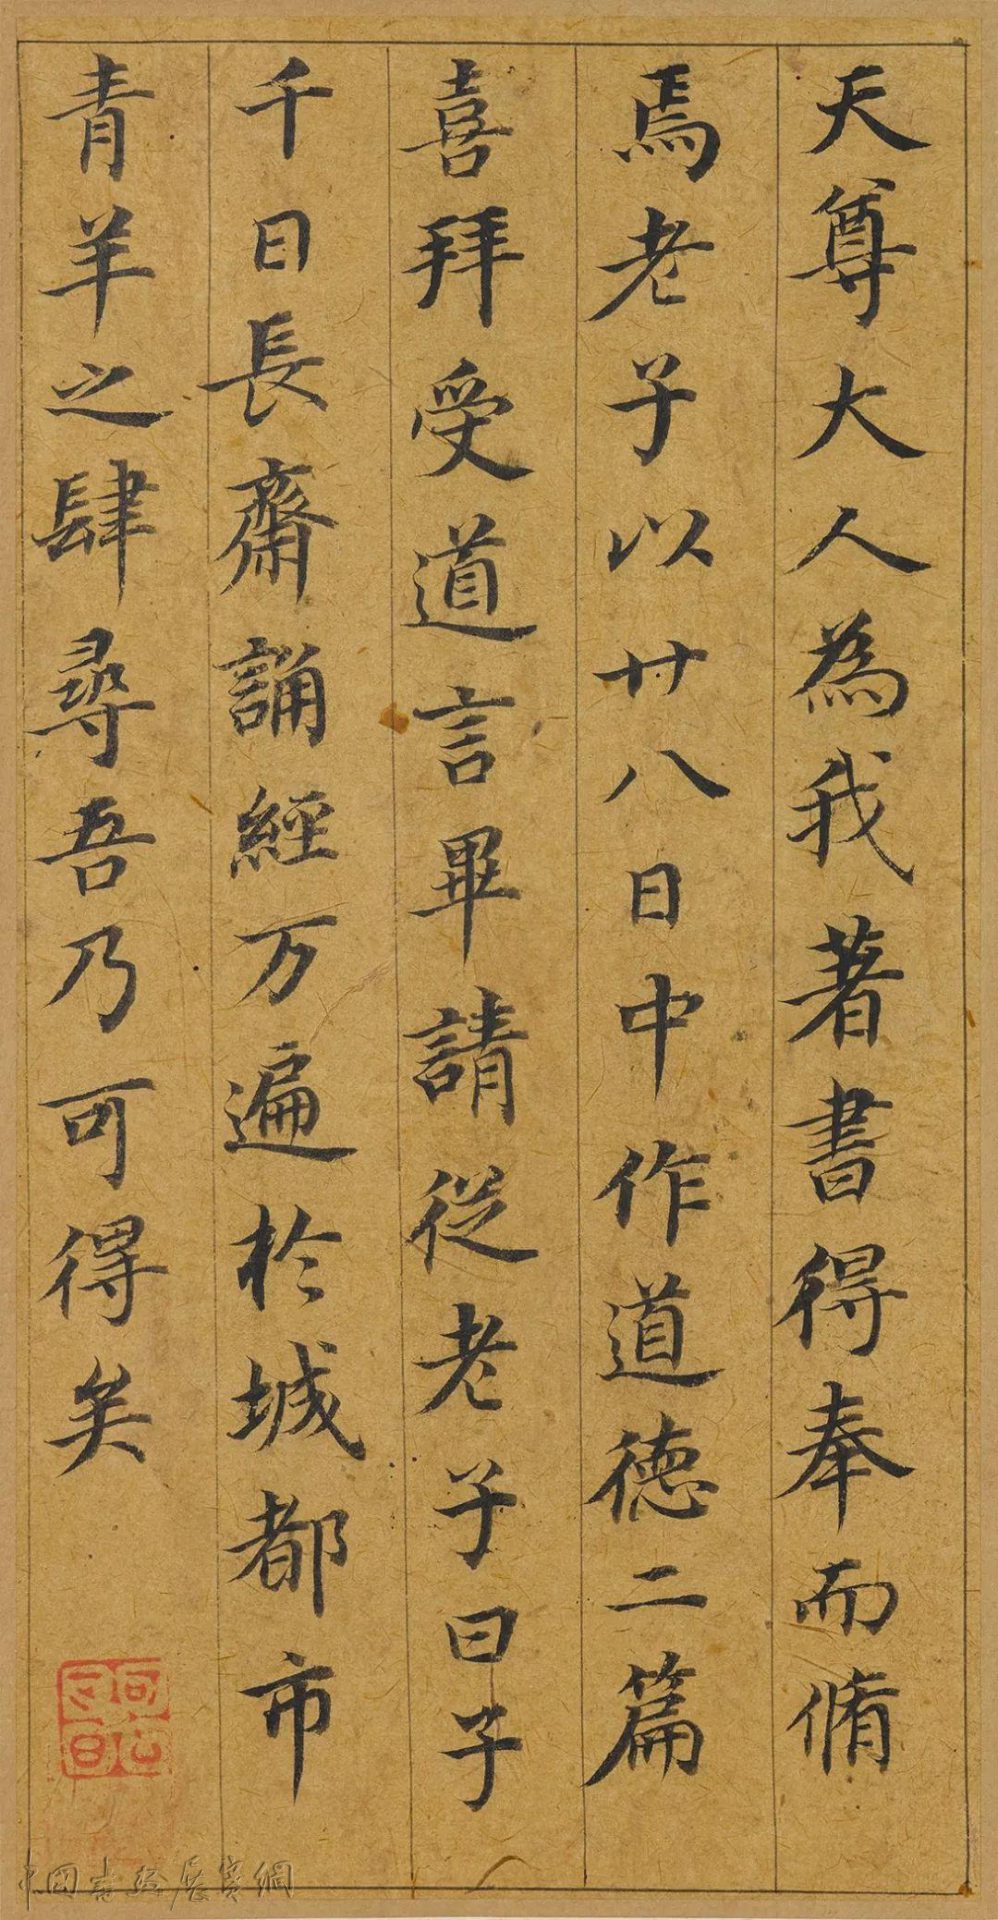 天尊大人為我著書得奉而脩
焉老子以廿八日中作道德二篇
喜拜受道言畢請從老子曰子
千日長齋誦經万遍於城都市
青羊之肆尋吾乃可得矣